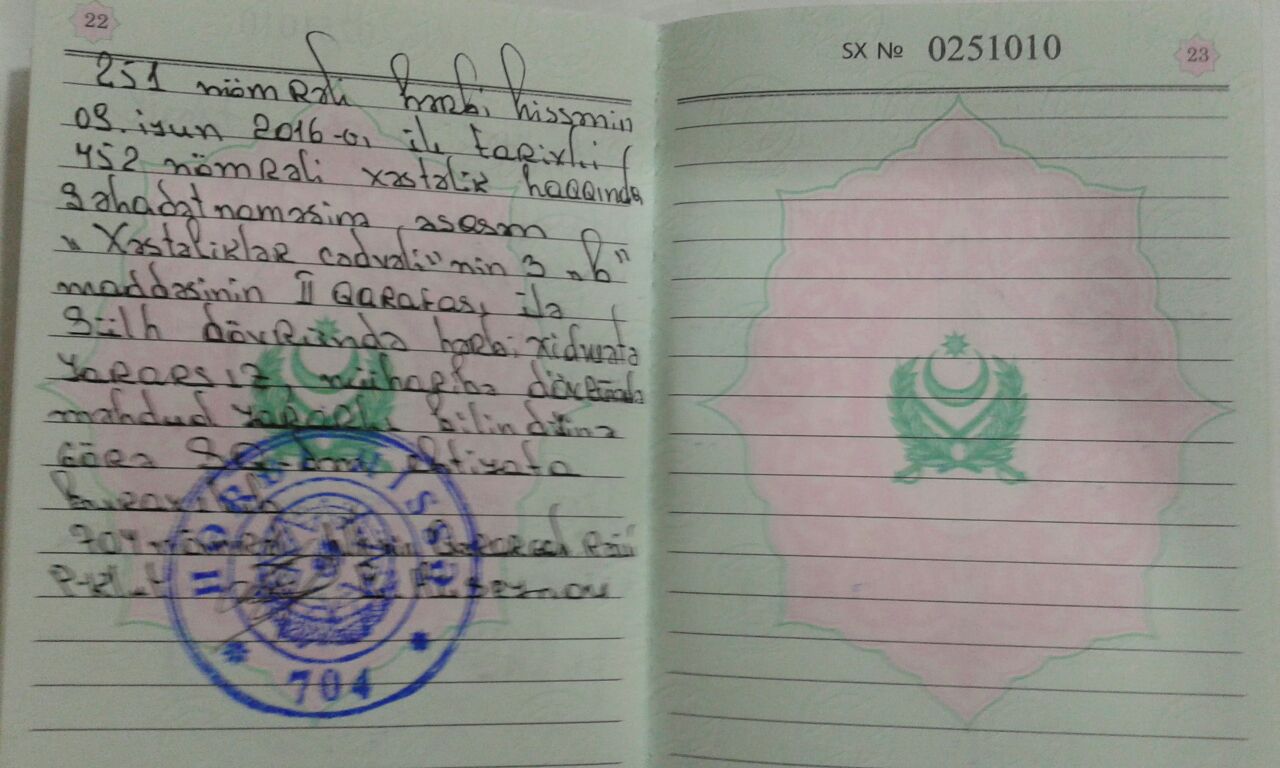 22
251 nömrəli hərbi hissənin
09.iyun 2016-cı il tarixli
452 nömrəli xəstəlik haqqında
Şəhadətnaməsinə əsasən
„Xəstəliklər cədvəli"nin 3 „b"
maddəsinin II qrafası ilə
Sülh dövründə hərbi xidmətə
yararsız, müharibə dövründə
məhdud yararlı bilindiyinə
görə ehtiyata
704
HİSSƏ
704
SX № 0251010
23